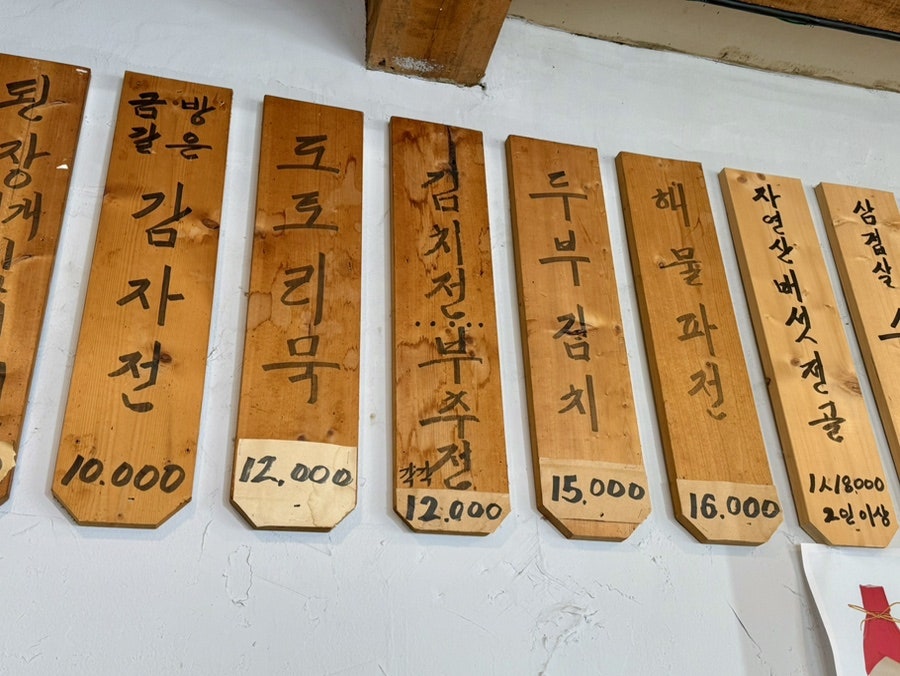 된장
금방
갈은
감자전
10.000
도토리묵
12,000
김치전
......
부추전
각각
12.000
두부김치
15,000
해물파전
16.000
자연산버섯전골
1人18.000
2인이상
삼겹살